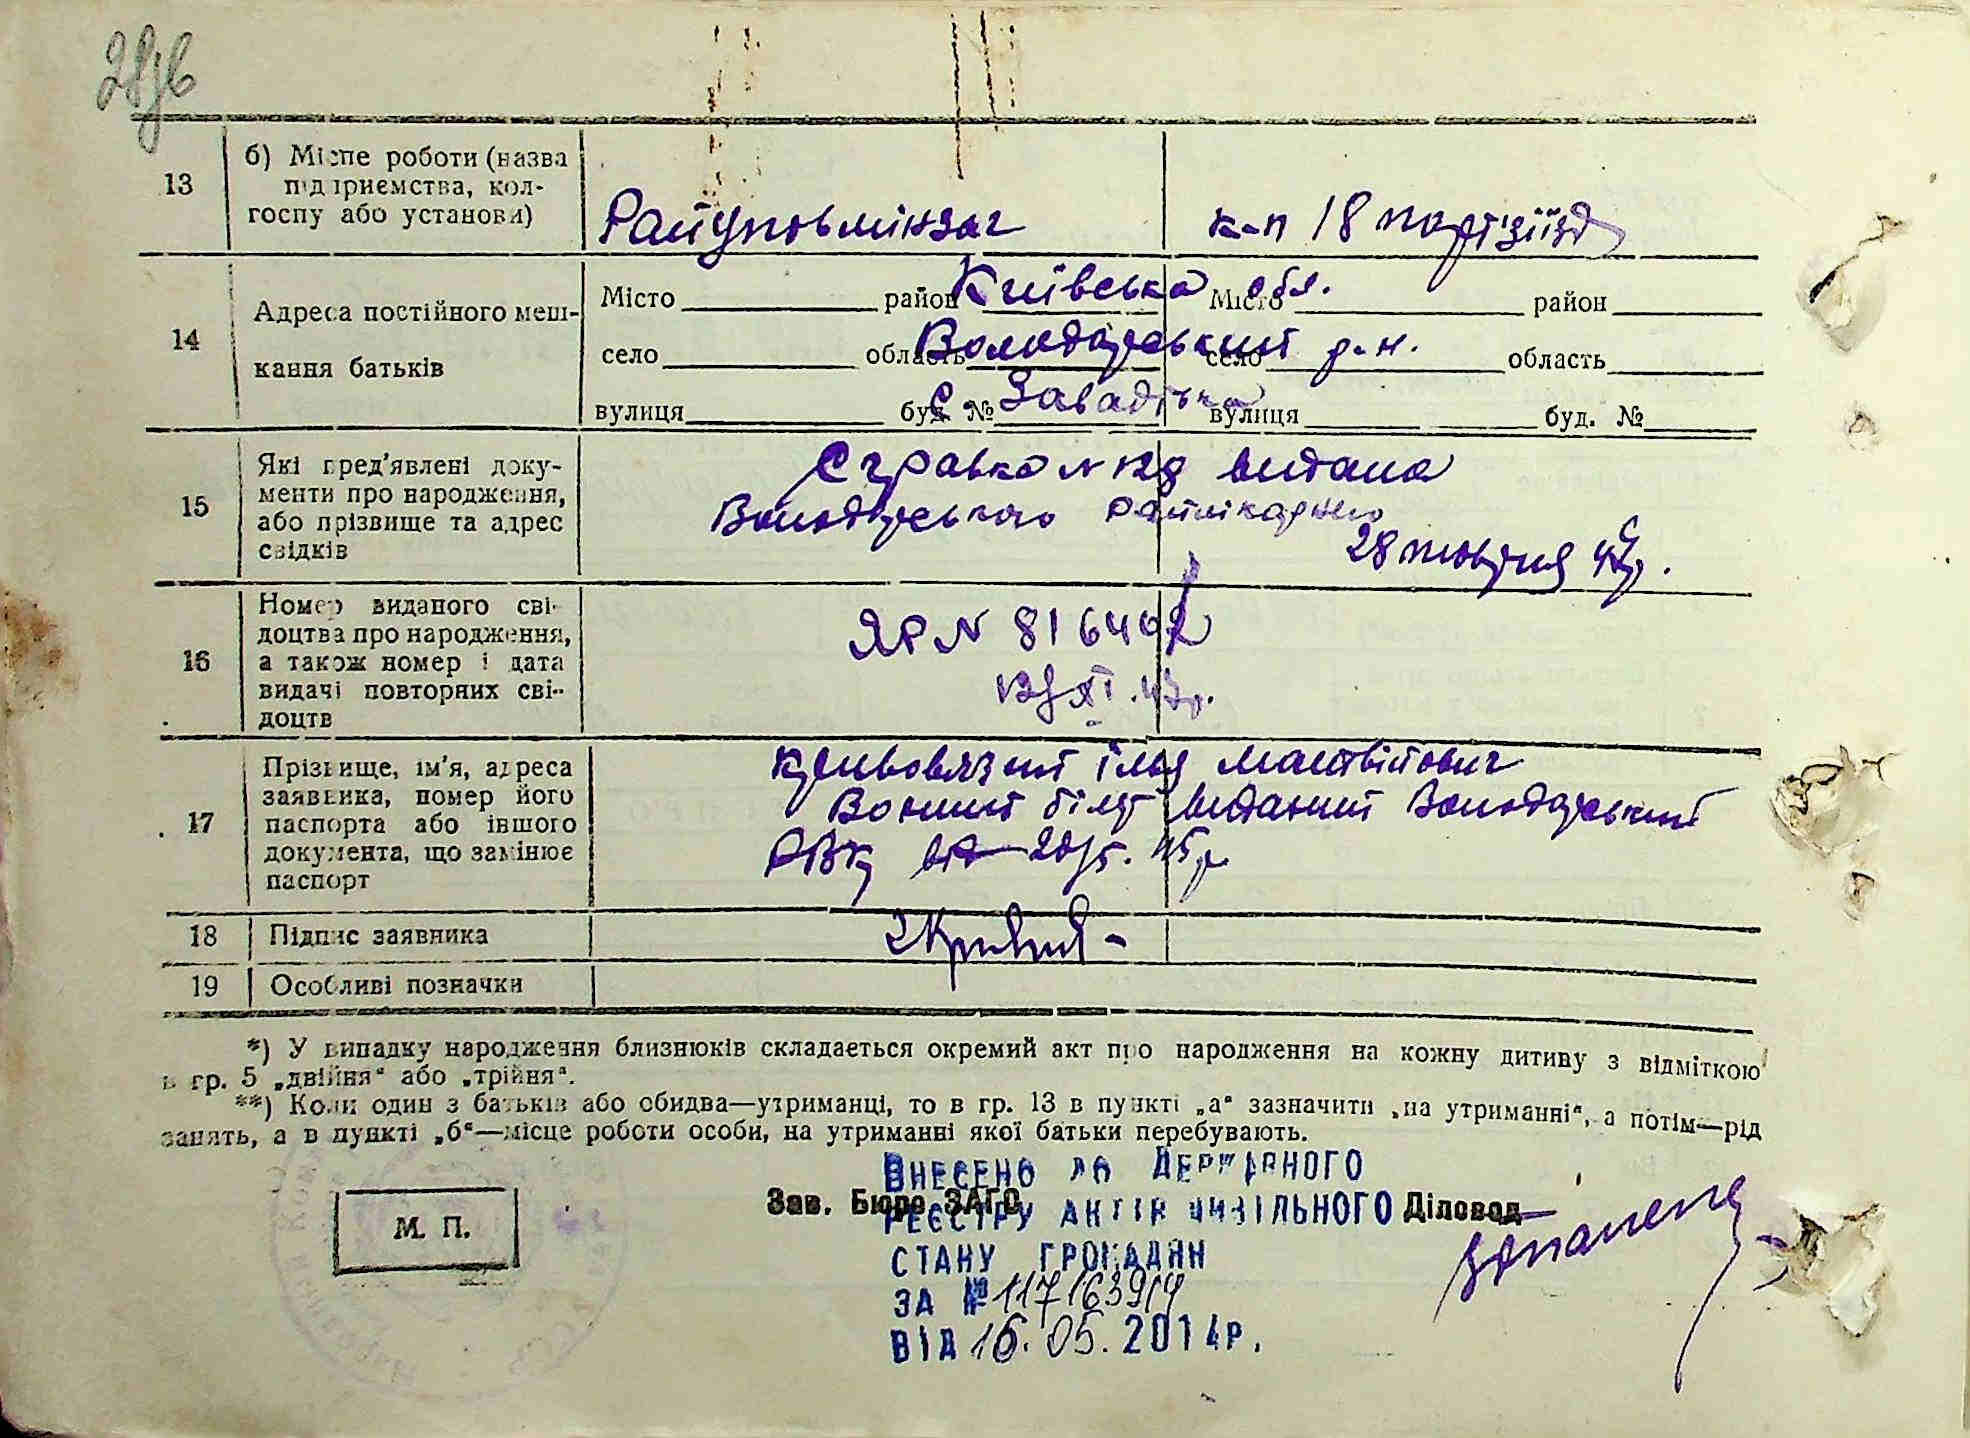 28зв
13 б) Місце роботи (назва підприємства, кол-
госпу або установи)
Райуповмінзаг
к-п 18 партз'їзд
14 Адреса постійного меш-
кання батьків
Місто район Місто район
Київська обл.
село область село область
Володарський р-н.
вулиця буд. № вулиця буд. №
с. Завадівка
15 Які пред'явлені доку-
менти про народження,
або прізвище та адрес
свідків
Справка N 128 видана
Володарського
28 жовтня 47р.
16 Номер виданого сві-
доцтва про народження,
а також номер і дата
видачі повторних сві-
доцтв
ЯР N 816402
XI. 47р.
17 Прізвище, ім'я, адреса
заявника, номер його
паспорта або іншого
документа, що замінює
паспорт
Кривовязий Ілья Матвійович
Воєний білет виданий Володарський
РВК від 45р
18 Підпис заявника
19 Особливі позначки
*) У випадку народження близнюків складається окремий акт про народження на кожну дитину з відміткою
в гр. 5 „двійня“ або „трійня“.
**) Коли один з батьків або обидва—утриманці, то в гр. 13 в пункті „а“ зазначити „на утриманні“, а потім—рід
занять, а в пункті „б“—місце роботи особи, на утриманні якої батьки перебувають.
М. П.
Зав. Бюро ЗАГС Діловод
ВНЕСЕНО ДО ДЕРЖАВНОГО
РЕЄСТРУ АКТІВ ЦИВІЛЬНОГО
СТАНУ ГРОМАДЯН
ЗА № 11716391
ВІД 16.05.2014Р.